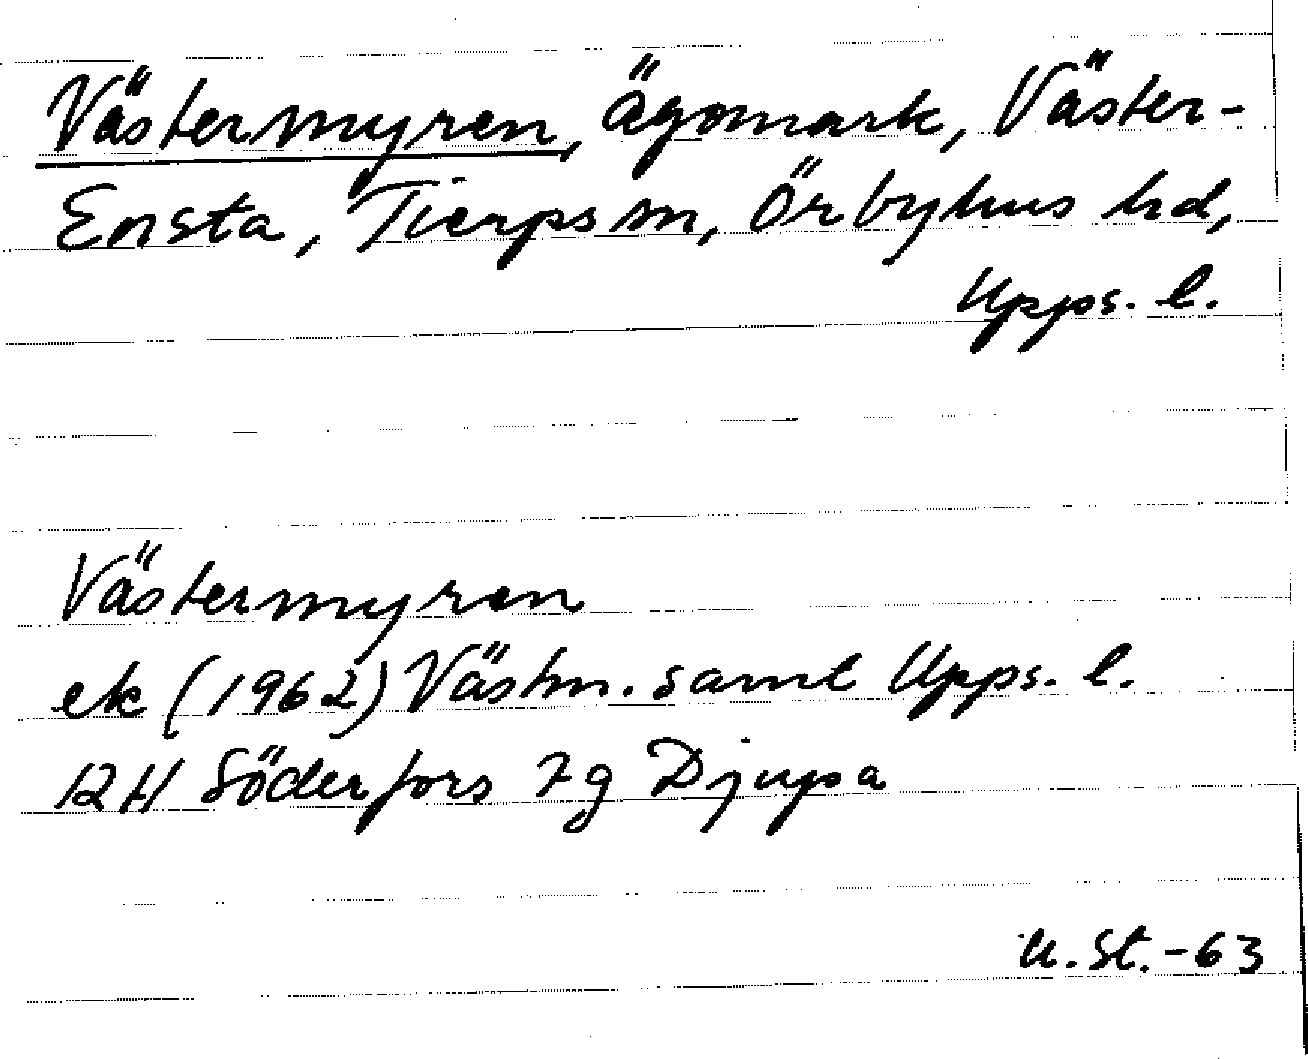 Västermyren, ägomark, Väster-
Ensta, Tierps sn, Örbyhus hd,
Upps. l.
Västermyren
ek (1962) Västm. samt Upps. l.
12H Söderfors 7g Djupa
U. St. -63